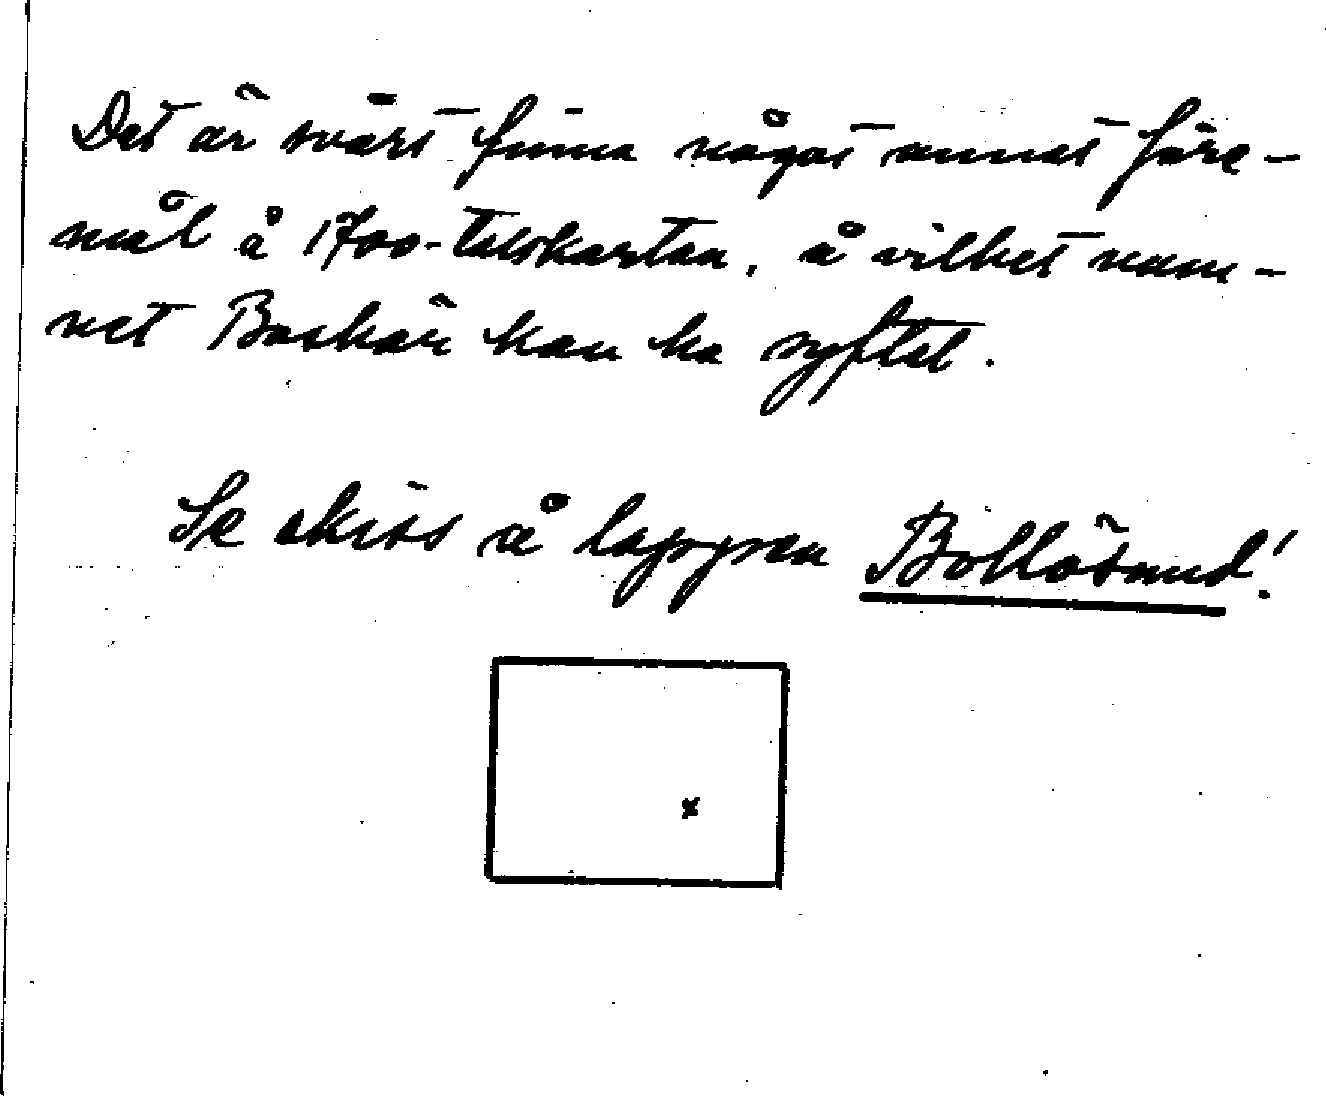 Det är svårt finna något annat före-
mål å 1700-talskartan, å vilket nam-
net Boskär kan ha syftat.
Se skiss å lappen Bollösund!
x